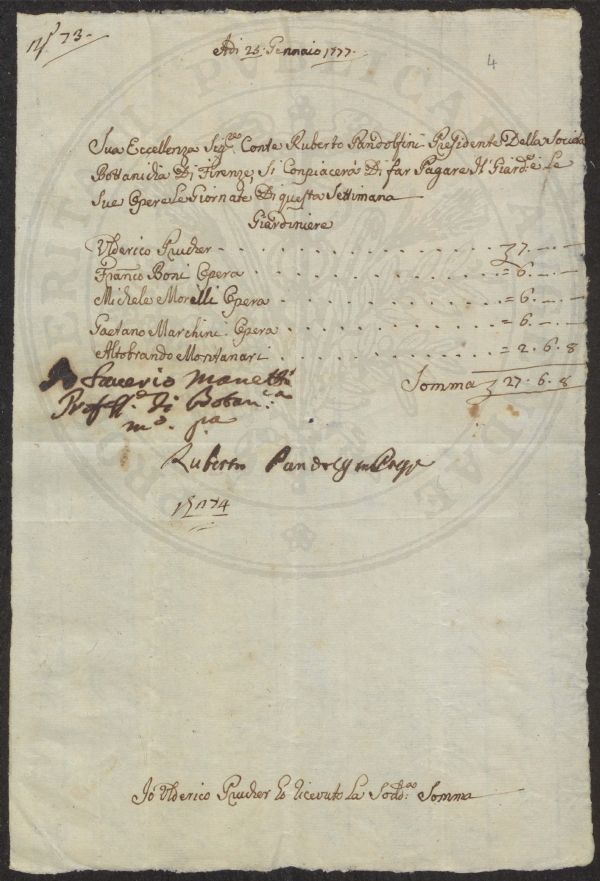 N° 73.
Adi 25. Gennaio 1777.
4
Sua Eccellenza Sig.re Conte Ruberto Pandolfini Presidente Della Societa
Bottanicha Di Firenze, Si Conpiacerà Di far Pagare Il Giard.e è Le
Sue Opere Le Giornate Di questa Settimana
Giardiniere
Ulderico Prucher - - - - 7. —. —
Franco Boni Opera - - - - = 6. —. —
Michele Morelli Opera - - - - = 6. —. —
Gaetano Marchini Opera - - - - = 6. —. —
Altobrando Montanari - - - - = 2. 6. 8
Somma 27. 6. 8
Io Saverio Manetti
Proff.e di Botan.ca
m.o p.a
Ruberto Pandolfini
Io Ulderico Prucher ho Ricevuto La Sodd.a Somma